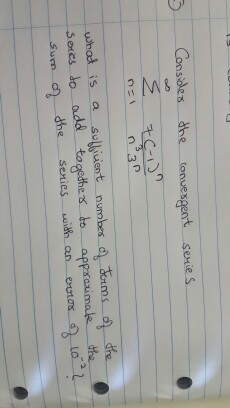 Consider the convergent series
∞
∑ 7(-1)ⁿ
n=1 n³3ⁿ
what is a sufficient number of terms of the
series to add together to approximate the
sum of the series with an error of 10⁻²?